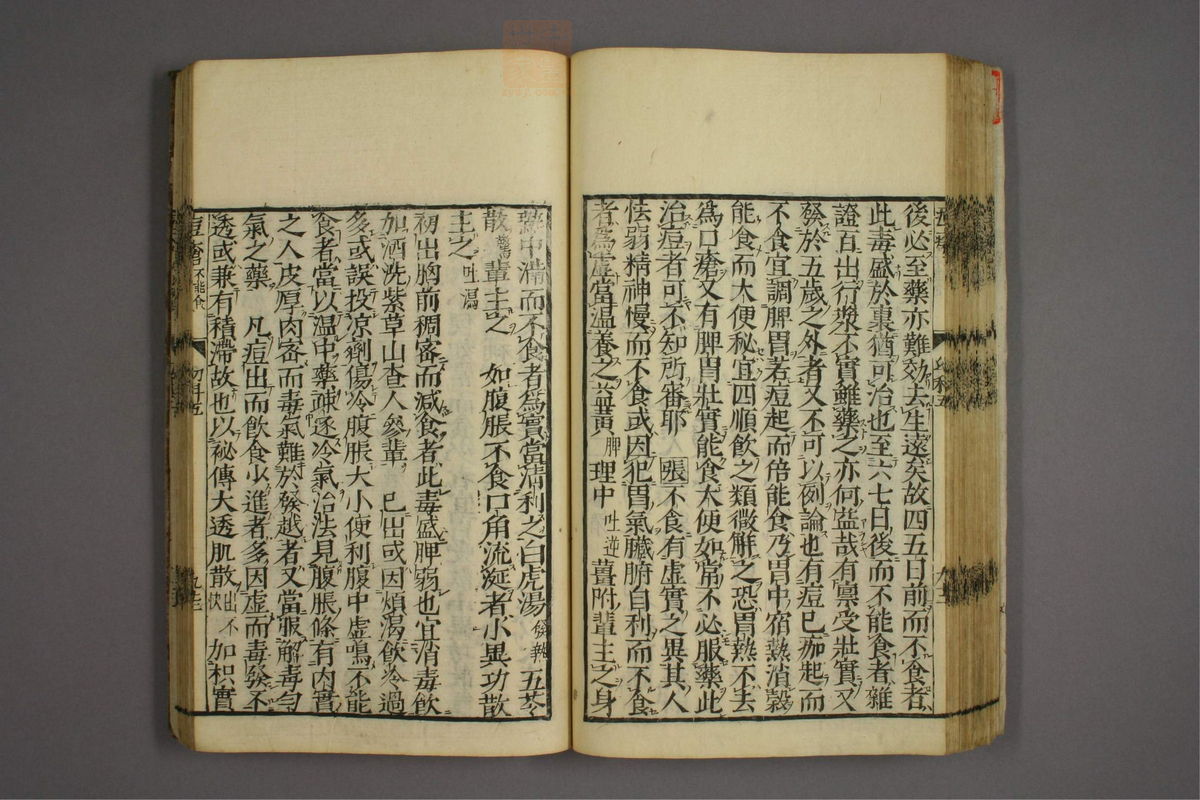 後必至藥亦難効去生遠矣故四五日前而不食者
此毒盛於裏猶可治也至六七日後而不能食者雜
證百出行漿不實雖藥之亦何益哉有禀受壯實又
發於五歲之外者又不可以例論也有痘已痂起而
不食宜調脾胃若痘起而倍能食乃胃中宿熱消穀
能食而大便秘宜四順飲之類微解之恐胃熱不去
爲口瘡又有脾胃壯實能食大便如常不必服藥此
治痘者可不知所審耶 張不食有虛實之異其人
怯弱精神慢而不食或因犯胃氣臟腑自利而不食
者爲虛當溫養之黃 脾 理中 吐逆 薑附輩主之身
熱中滿而不食者爲實當清利之白虎湯 發熱 五苓
散 驚 輩主之 如腹脹不食口角流涎者小異功散
主之 吐瀉
初出胸前稠密而減食者此毒盛脾弱也宜消毒飲
加酒洗紫草山查人參輩 已出或因煩渴飲冷過
多或誤投凉劑傷冷腹脹大小便利腹中虛鳴不能
食者當以溫中藥疎逐冷氣治法見腹脹條有内實
之人皮厚肉密而毒氣難於發越者又當服解毒勻
氣之藥 凡痘出而飲食少進者多因虛而毒發不
透或兼有積滯故也以秘傳大透肌散 出不快 加枳實
痘瘡 不能食